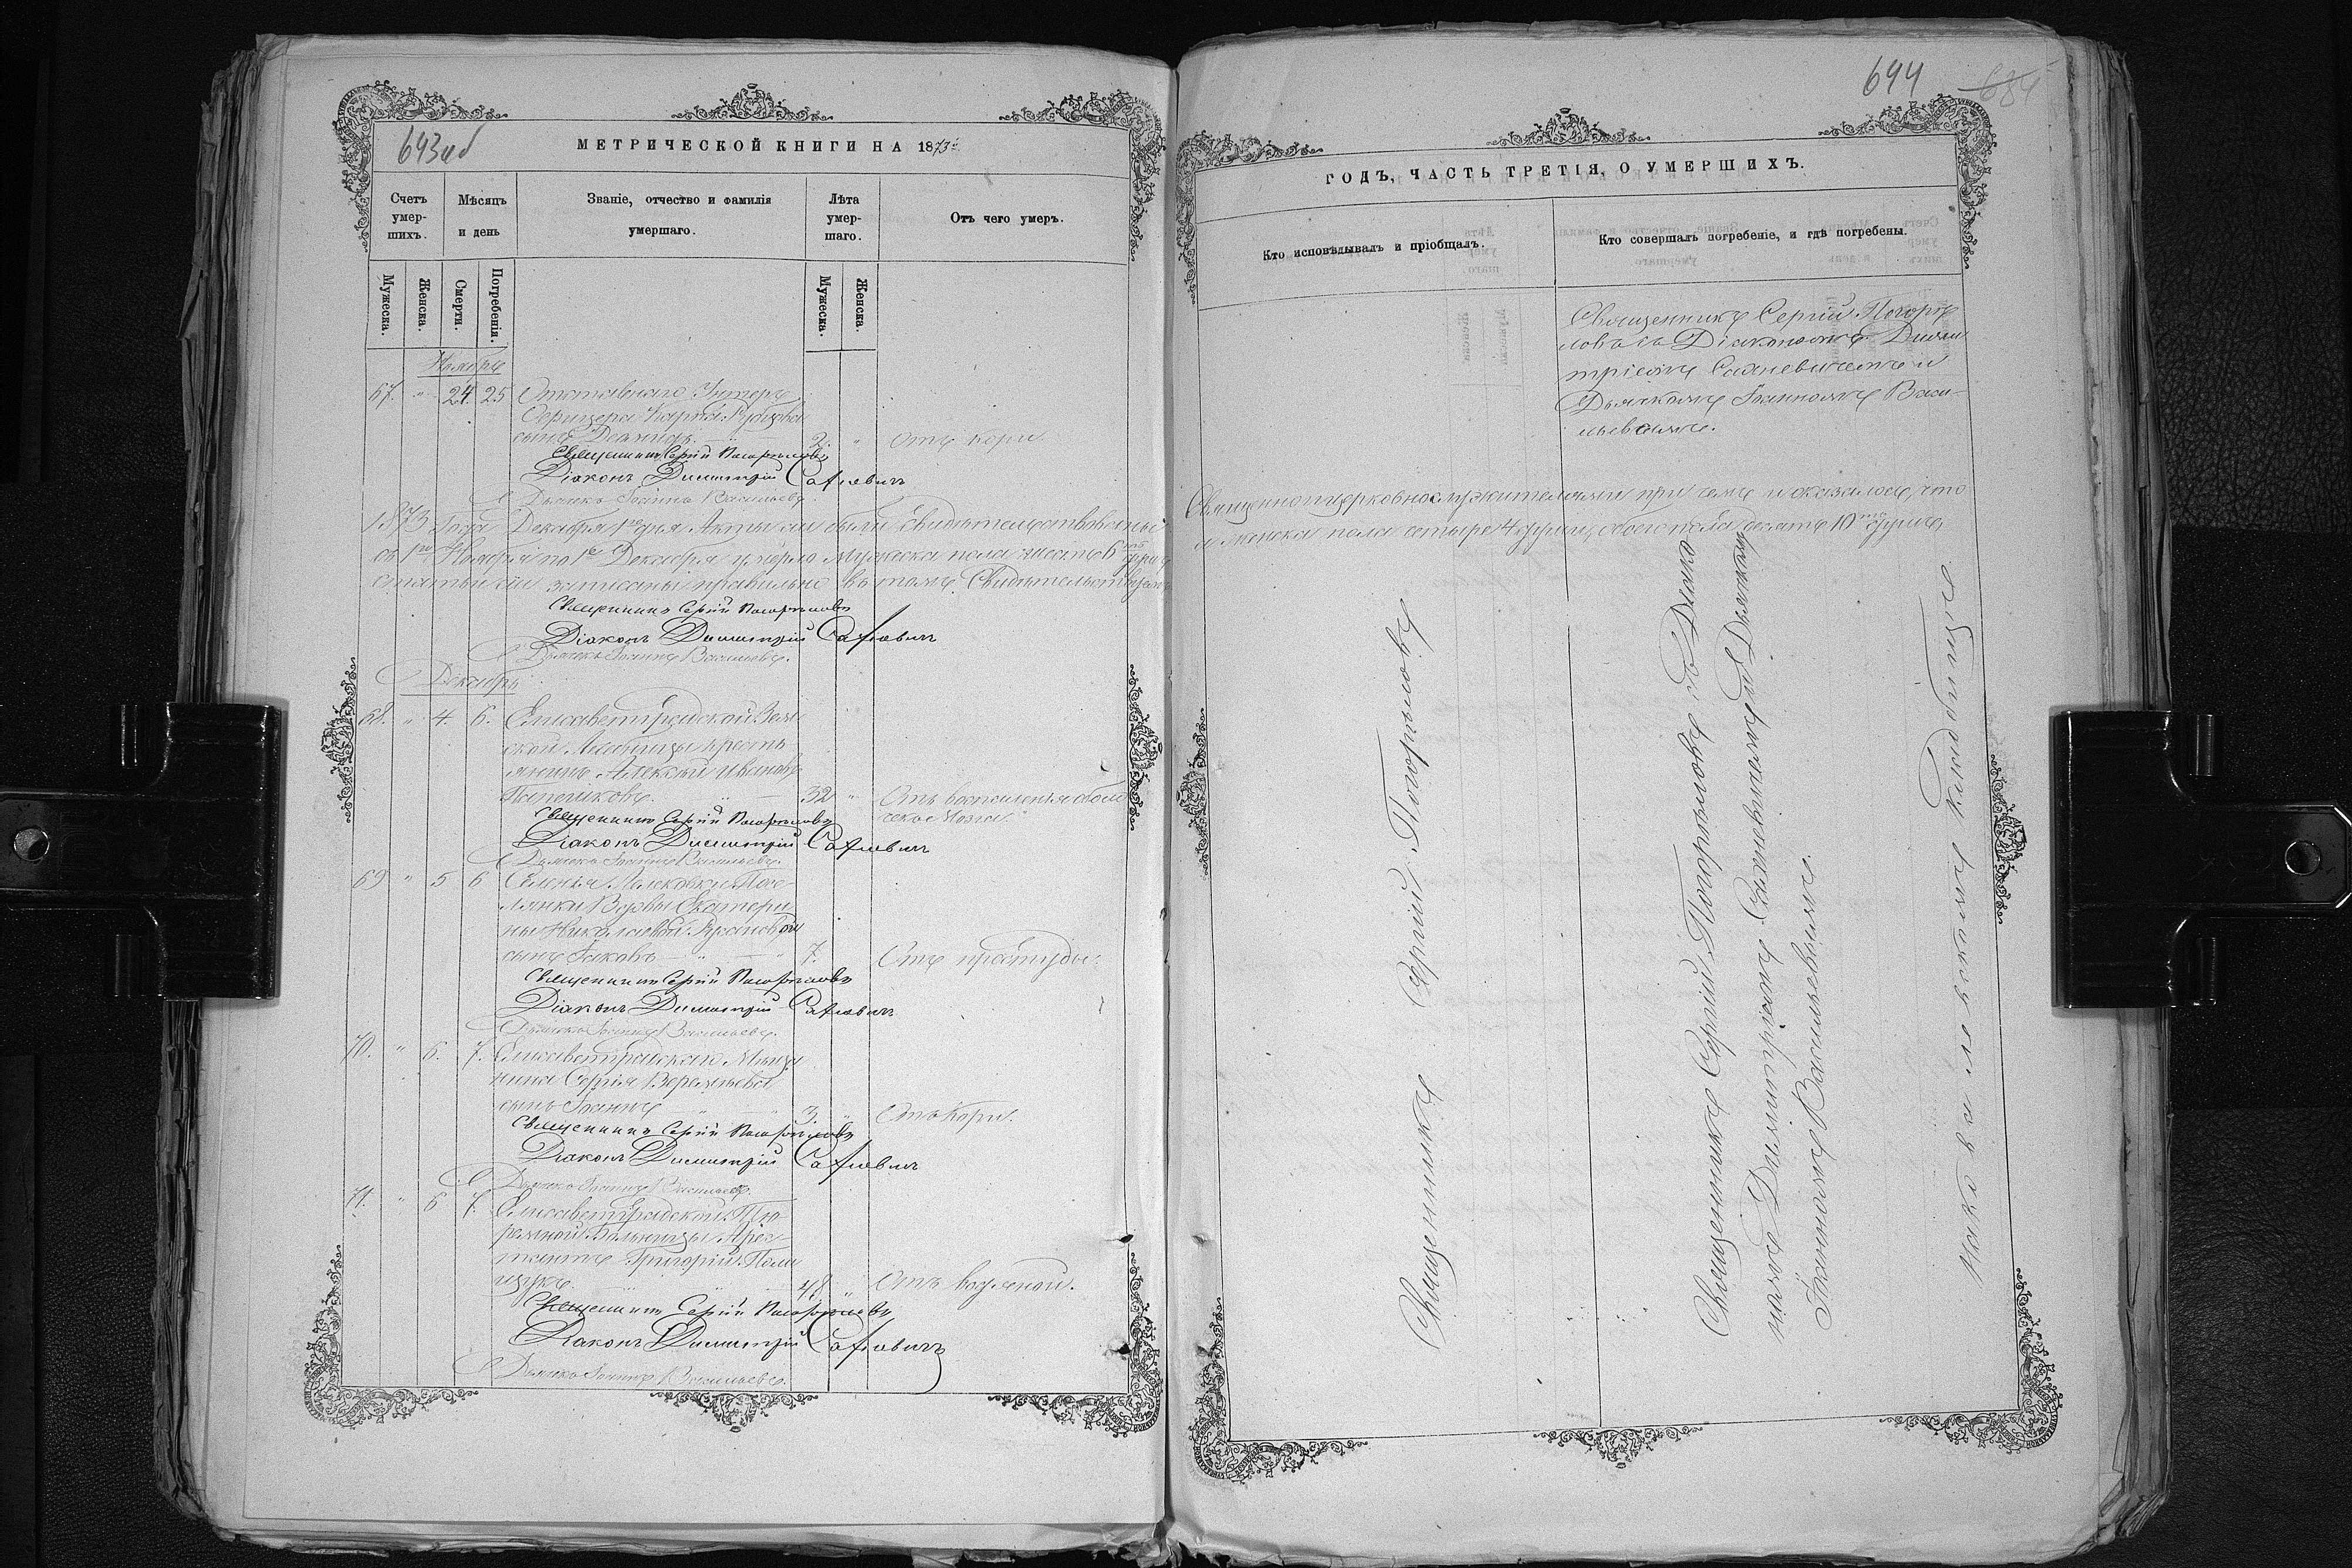 643об
МЕТРИЧЕСКОЙ КНИГИ НА 1873й
Счетъ умер-шихъ.
Мѣсяцъ и день
Званіе, отчество и фамилія умершаго.
Лѣта умер-шаго.
Отъ чего умеръ.
Мужеска.
Женска.
Смерти.
Погребенія.
Мужеска.
Женска.
Ноябрь
67. " 24. 25 Отставнаго Унтеръ
Офицера Карпа
сынъ 2. " Отъ кори
Священникъ Сергій Погорѣловъ
Діаконъ Димитрій Сахневичъ
Дьячекъ Іоаннъ Васильевъ.
1873 Года Декабря 1го дня Акты сіи были свидѣтельствованы
съ 1го Ноября по 1е Декабря умерло Мужеска пола шесть 6ть душъ
статьи сіи записаны правильно въ томъ Свидѣтельствуемъ
Священникъ Сергій Погорѣловъ
Діаконъ Димитрій Сахневичъ
Дьячекъ Іоаннъ Васильевъ.
Декабрь
68. " 4. 5. Елисаветградской Зем
ской Больницы крестья
янинъ Алексѣй Ивановъ
32 " Отъ воспаленія оболо
чекъ мозга.
Священникъ Сергій Погорѣловъ
Діаконъ Димитрій Сахневичъ
Дьячекъ Іоаннъ Васильевъ.
69 " 5 6 Селенія Лелековки Посе-
лянки Вдовы Екатери
ны Николаевой
сынъ Іаковъ 7. Отъ простуды.
Священникъ Сергій Погорѣловъ
Діаконъ Димитрій Сахневичъ
Дьячекъ Іоаннъ Васильевъ.
70. " 6. 7. Елисаветградскаго Мѣща
нина Сергія Веремѣева
сынъ Іоаннъ 3. " Отъ кори.
Священникъ Сергій Погорѣловъ
Діаконъ Димитрій Сахневичъ
Дьячекъ Іоаннъ Васильевъ.
71. " 6 7. Елисаветградской Тю-
ремной Больницы Арес-
тантъ Григорій Поли
щукъ. 48 " Отъ водяной.
Священникъ Сергій Погорѣловъ
Діаконъ Димитрій Сахневичъ
Дьячекъ Іоаннъ Васильевъ.
644 684
ГОДЪ, ЧАСТЬ ТРЕТІЯ, О УМЕРШИХЪ.
Кто исповѣдывалъ и пріобщалъ.
Кто совершалъ погребеніе, и гдѣ погребены.
Священникъ Сергій Погорѣ
ловъ съ Діакономъ Дими
тріемъ Сахневичемъ и
Дьячкомъ Іоанномъ Васи-
льевымъ.
Священноцерковнослужителями при чемъ и оказалось, что
и Женска пола четыре 4 души, обоего пола десять 10ть душъ,
Священникъ Сергій Погорѣловъ
Священникъ Сергій Погорѣловъ съ Діако
номъ Димитріемъ Сахневичемъ и Дьячкомъ
Іоанномъ Васильевымъ.
кладбищѣ